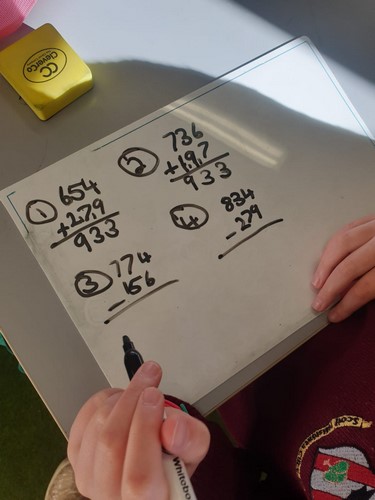 CC
CleverCo
① 654
+279
933
② 736
+197
933
③ 774
-156
④ 834
-279
Whitebo